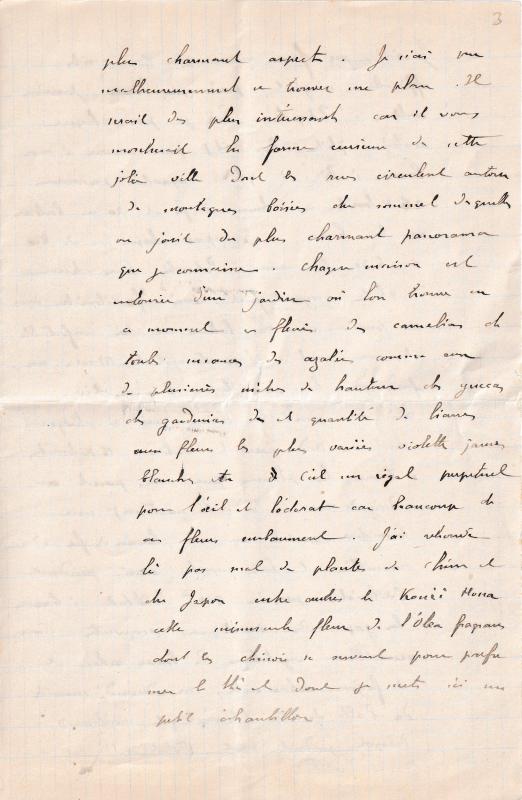 3
plus charmant aspect. Je n'ai pu
malheureusement me trouver un plan. Il
serait des plus intéressants car il vous
montrerait la forme curieuse de cette
jolie ville dont les rues circulent autour
de montagnes boisées du sommet desquelles
on jouit du plus charmant panorama
que je connaisse. Chaque maison est
entourée d'un jardin où l'on trouve en
ce moment en fleurs des camelias de
toutes nuances des azalées comme
de plusieurs mètres de hauteur des yuccas
des gardenias des et quantité de lianes
aux fleurs les plus variées violettes jaunes
blanches etc C'est un régal perpétuel
pour l'oeil et l'odorat car beaucoup de
ces fleurs embaument. J'ai retrouvé
là pas mal de plantes de Chine et
du Japon entre autres le Hona
cette minuscule fleur de l'Olea fragrans
dont les chinois se servent pour parfu
mer le thé et dont je mets ici un
petit échantillon